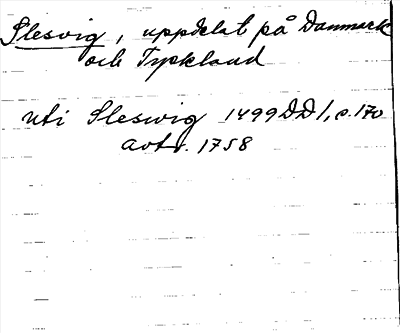 Slesvig, uppdelat på Danmark
och Tyskland
uti Sleswig 1499 DD1, s. 170
avtr. 1758